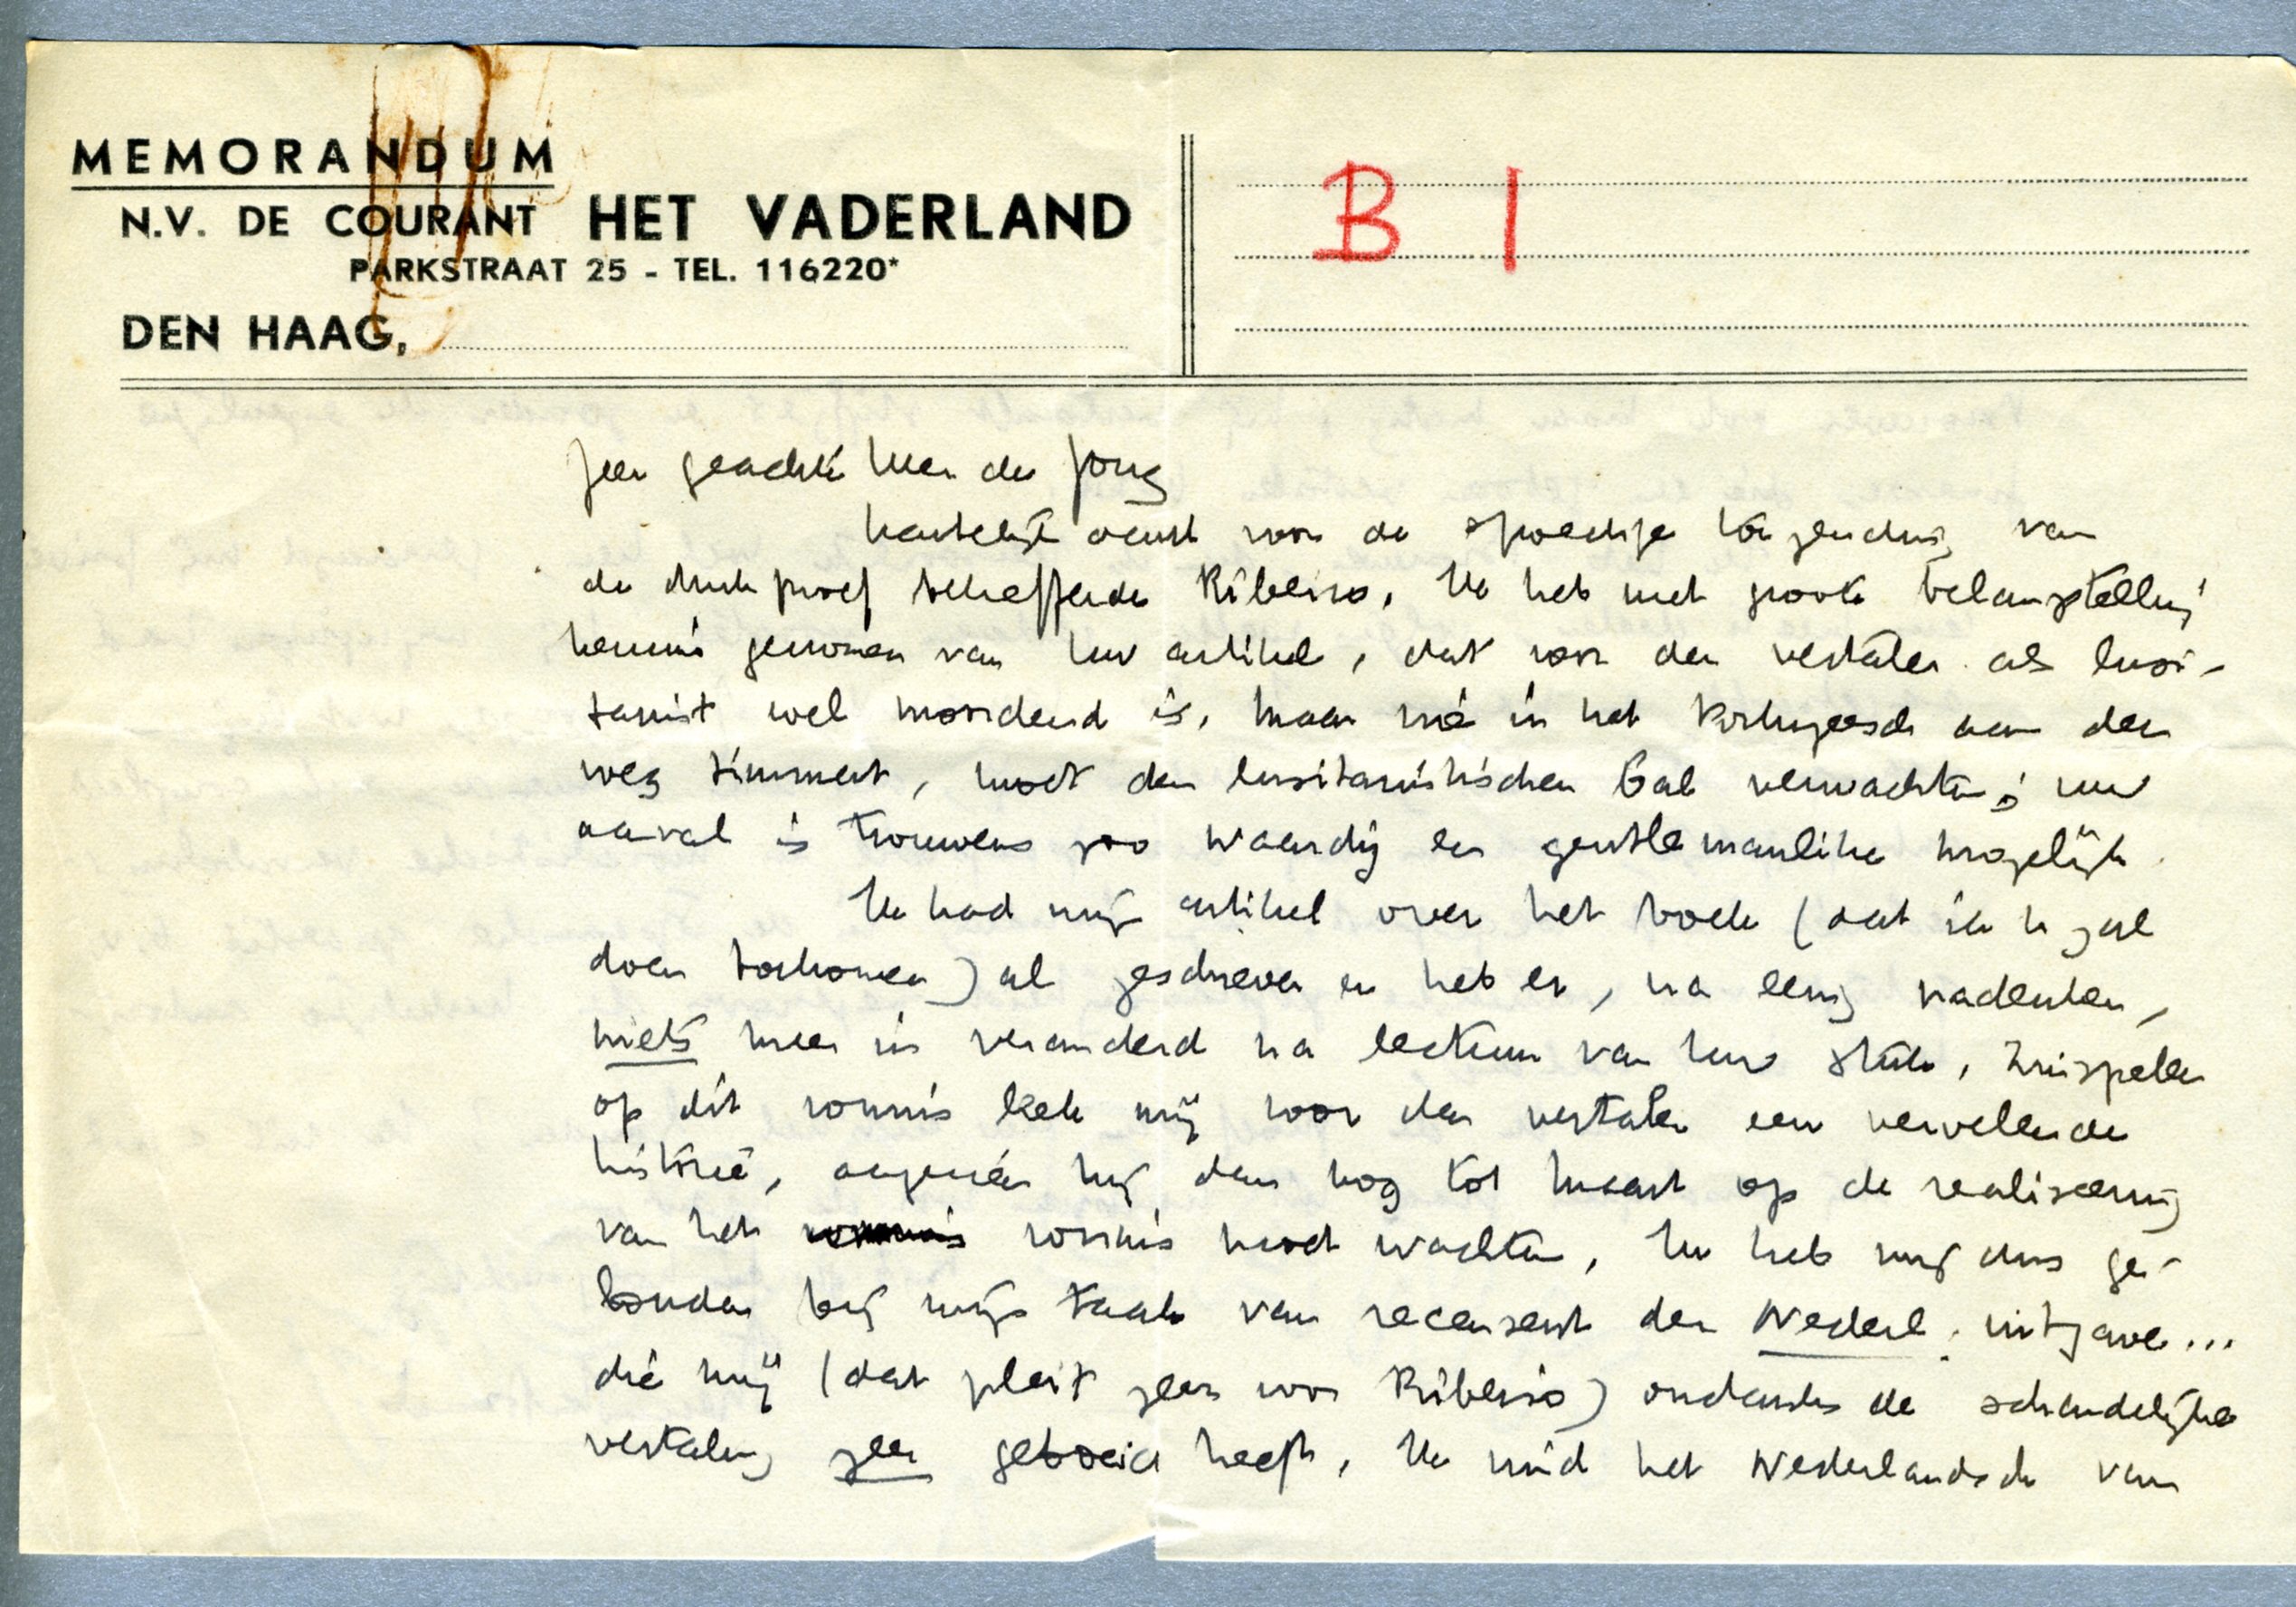 MEMORANDUM
N.V. DE COURANT HET VADERLAND
PARKSTRAAT 25 - TEL. 116220*
DEN HAAG,
B I
Zeer geachte Heer de Jong
hartelijk dank voor de spoedige toezending van
de drukproef betreffende Ribeiro. Ik heb met groote belangstelling
kennis genomen van Uw artikel, dat voor den vertaler als lusi-
tanist wel moordend is. Maar wie in het Portugeesch aan den
weg timmert, moet den lusitanistischen Bal verwachten; uw
aanval is trouwens zoo waardig en gentlemanlike mogelijk.
Ik had mijn artikel over het boek (dat ik u zal
doen toekomen) al geschreven en heb er, na eenig nadenken,
niets meer in veranderd na lectuur van Uw stuk. Zinspelen
op dit vonnis leek mij voor den vertaler een vervelende
historie, aangezien hij dan nog tot Maart op de realiseering
van het vonnis moet wachten. Ik heb mij dus ge-
houden bij mijn taak van recensent der Nederl. uitgave...
die mij (dat pleit zeer voor Ribeiro) ondanks de schandelijke
vertaling zeer geboeid heeft. Ik vind het Nederlandsch van